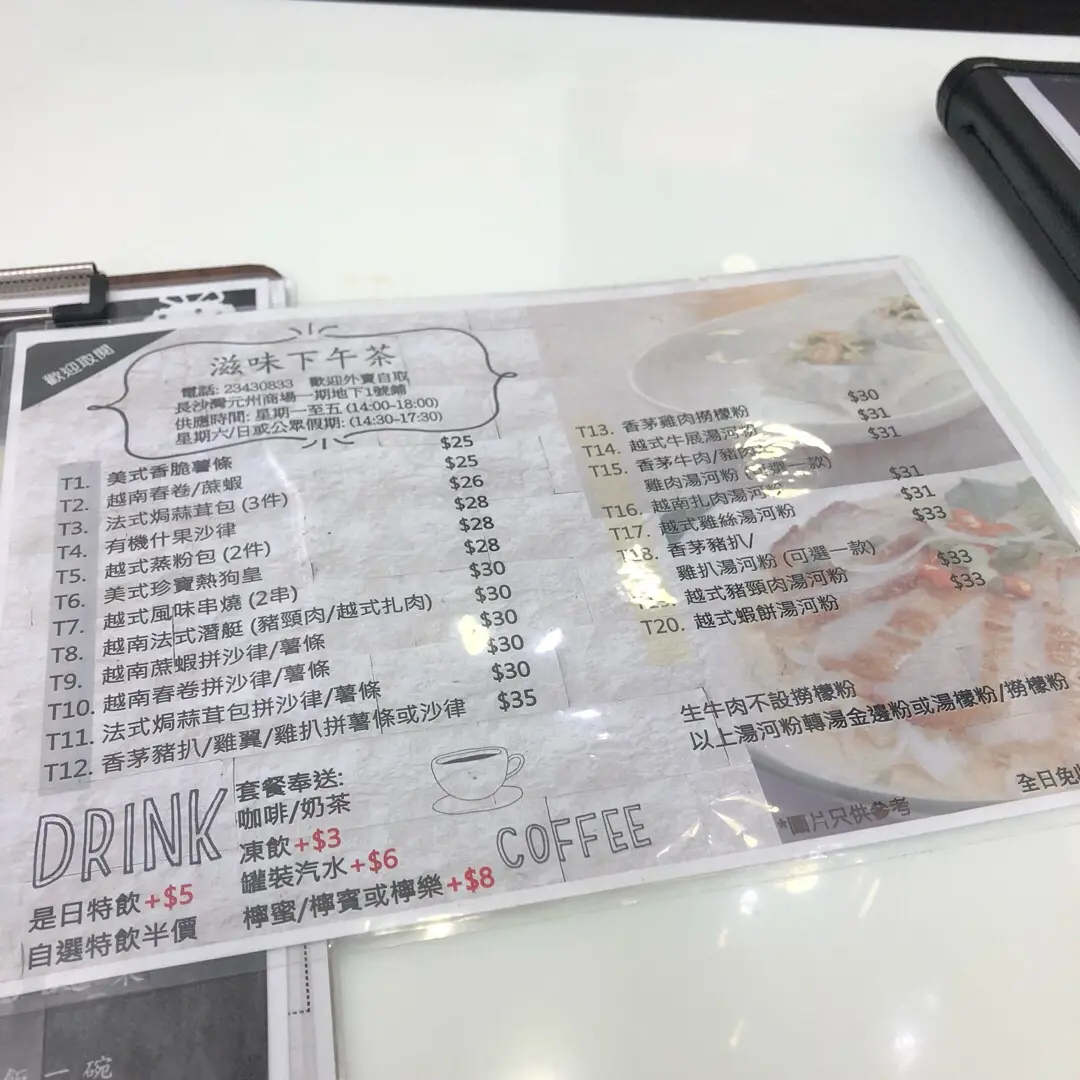 歡迎取閱
滋味下午茶
電話: 23430833 歡迎外賣自取
長沙灣元州商場一期地下1號鋪
供應時間: 星期一至五 (14:00-18:00)
星期六/日或公眾假期: (14:30-17:30)
T1. 美式香脆薯條 $25
T2. 越南春卷/蔗蝦 $25
T3. 法式焗蒜茸包 (3件) $26
T4. 有機什果沙律 $28
T5. 越式蒸粉包 (2件) $28
T6. 美式珍寶熱狗皇 $28
T7. 越式風味串燒 (2串) $30
T8. 越南法式潛艇 (豬頸肉/越式扎肉) $30
T9. 越南蔗蝦拼沙律/薯條 $30
T10. 越南春卷拼沙律/薯條 $30
T11. 法式焗蒜茸包拼沙律/薯條 $30
T12. 香茅豬扒/雞翼/雞扒拼薯條或沙律 $35
T13. 香茅雞肉撈檬粉 $30
T14. 越式牛展湯河粉 $31
T15. 香茅牛肉/豬肉/ $31
雞肉湯河粉 (可選一款)
T16. 越南扎肉湯河粉 $31
T17. 越式雞絲湯河粉 $31
T18. 香茅豬扒/ $33
雞扒湯河粉 (可選一款)
越式豬頸肉湯河粉 $33
T20. 越式蝦餅湯河粉 $33
生牛肉不設撈檬粉
以上湯河粉轉湯金邊粉或湯檬粉/撈檬粉
全日免
*圖片只供參考
DRINK
套餐奉送:
咖啡/奶茶
凍飲+$3
罐裝汽水+$6
檸蜜/檸賓或檸樂+$8
COFFEE
是日特飲+$5
自選特飲半價
飯一碗